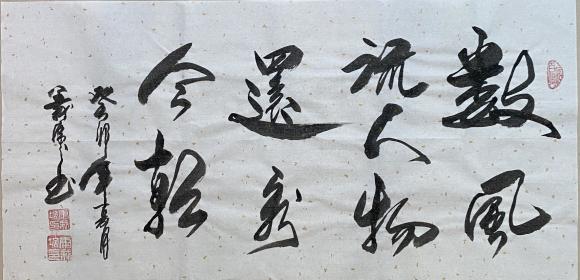 數風
流人物
還看
今朝
癸卯年
书